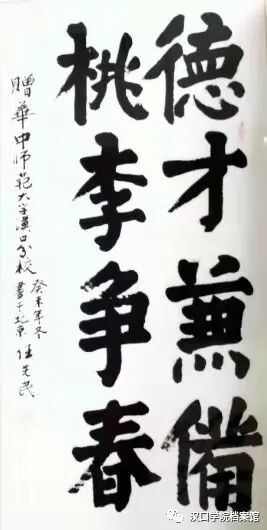 德才兼備
桃李争春
贈華中师范大学漢口分校
癸未年冬
書于北京 任先民
汉口学院档案馆